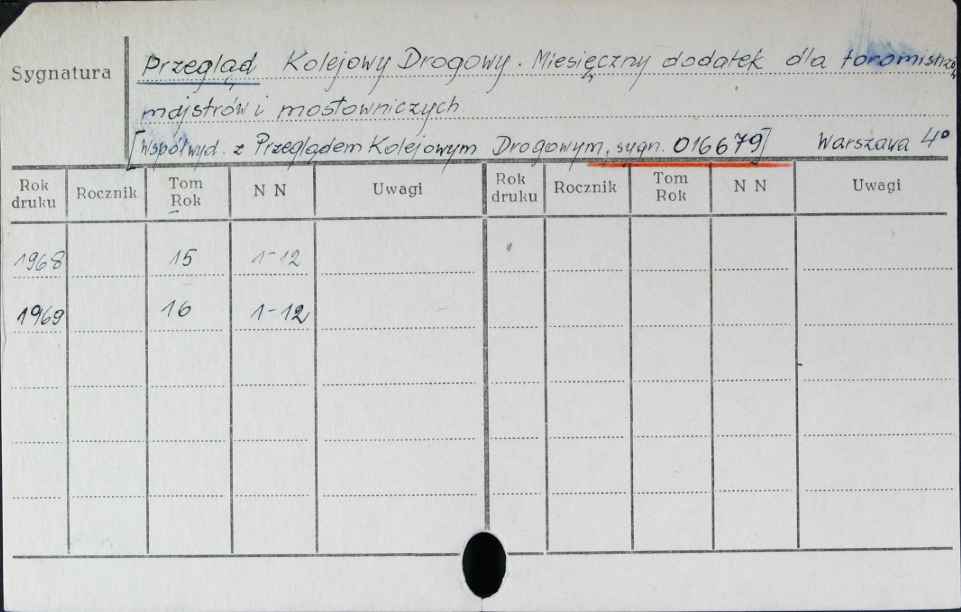 Sygnatura
Przegląd Kolejowy Drogowy. Miesięczny dodatek dla toromistrzów,
majstrów i mostowniczych
[Współwyd. z Przeglądem Kolejowym Drogowym, sygn. 016679] Warszawa 4°
Rok druku Rocznik Tom Rok N N Uwagi Rok druku Rocznik Tom Rok N N Uwagi
1968 15 1-12
1969 16 1-12